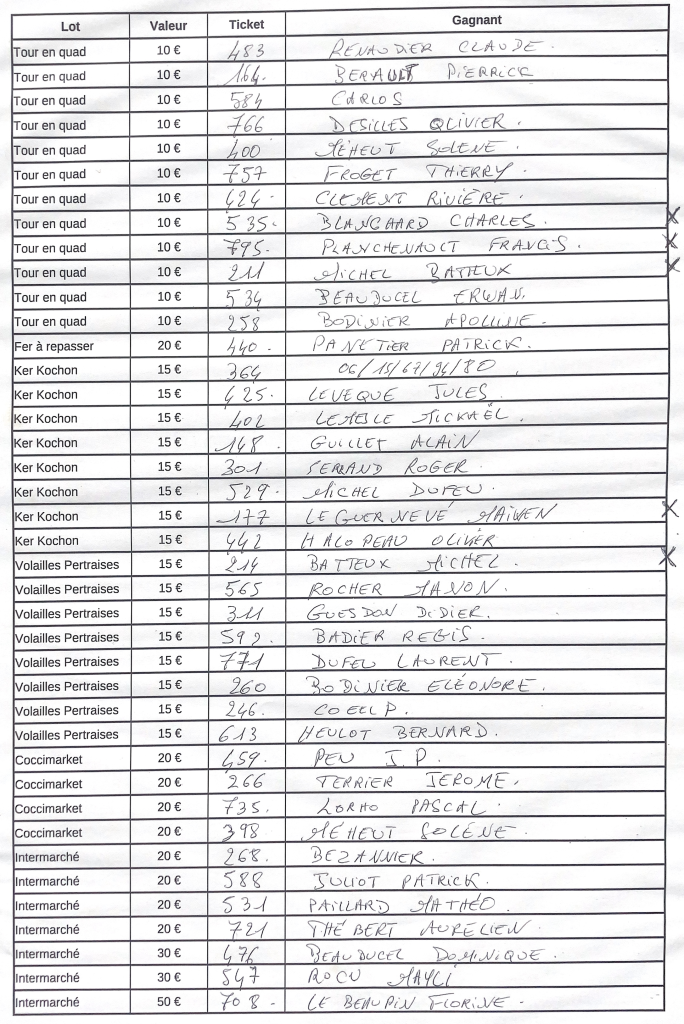 Lot Valeur Ticket Gagnant
Tour en quad 10 € 483 RENAUDIER CLAUDE.
Tour en quad 10 € 164. BERAULT PIERRICK
Tour en quad 10 € 584 CARLOS
Tour en quad 10 € 766 DESILLES OLIVIER.
Tour en quad 10 € 400 MÉHEUT SOLENE.
Tour en quad 10 € 757 FROGET THIERRY.
Tour en quad 10 € 424. CLEMENT RIVIÈRE.
Tour en quad 10 € 535. BLANCHARD CHARLES. X
Tour en quad 10 € 795. PLANCHENAULT FRANCIS. X
Tour en quad 10 € 211 MICHEL BATTEUX X
Tour en quad 10 € 534 BEAUDUCEL ERWAN.
Tour en quad 10 € 258 BODINIER APOLLINE.
Fer à repasser 20 € 440. PANETIER PATRICK.
Ker Kochon 15 € 364 06/15/67/94/80
Ker Kochon 15 € 425. LEVEQUE JULES
Ker Kochon 15 € 402 LEMESLE MICKAËL.
Ker Kochon 15 € 148. GUILLET ALAIN
Ker Kochon 15 € 301 SERRAND ROGER.
Ker Kochon 15 € 529. MICHEL DUFEU.
Ker Kochon 15 € 177 LE GUERNEVÉ MAIWEN X
Ker Kochon 15 € 442 HALOPEAU OLIVIER
Volailles Pertraises 15 € 214 BATTEUX MICHEL. X
Volailles Pertraises 15 € 565 ROCHER MANON.
Volailles Pertraises 15 € 311 GUESDON DIDIER.
Volailles Pertraises 15 € 592. BADIER REGIS.
Volailles Pertraises 15 € 771 DUFEU LAURENT.
Volailles Pertraises 15 € 260 BODINIER ELÉONORE.
Volailles Pertraises 15 € 246. P.
Volailles Pertraises 15 € 613 HEULOT BERNARD.
Coccimarket 20 € 459. PEU J.P.
Coccimarket 20 € 266 TERRIER JEROME.
Coccimarket 20 € 735. LORHO PASCAL.
Coccimarket 20 € 398 MÉHEUT SOLÉNE.
Intermarché 20 € 268. BEZANNIER.
Intermarché 20 € 588 JULIOT PATRICK.
Intermarché 20 € 531 PAILLARD MATHÉO
Intermarché 20 € 721 THÉBERT AURELIEN.
Intermarché 30 € 476 BEAUDUCEL DOMINIQUE.
Intermarché 30 € 547 ROCU MAYLI
Intermarché 50 € 708. LE BEAUPIN FLORINE.